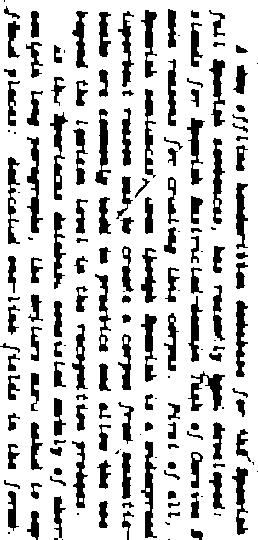 A new offline handwritten database for the Spanish
full Spanish sentences, has recently been developed:
stands for Spanish Restricted-domain Task of Cursive
main reasons for creating this corpus. First of all,
Spanish sentences, even though Spanish is a widespread
important reason was to create a corpus from semantic-
tasks are commonly used in practice and allow the use
beyond the lexicon level in the recognition process.
As the Spartacus database consisted mainly of short
sample long paragraphs, the writers were asked to copy
fixed places: dedicated one-line fields in the forms.